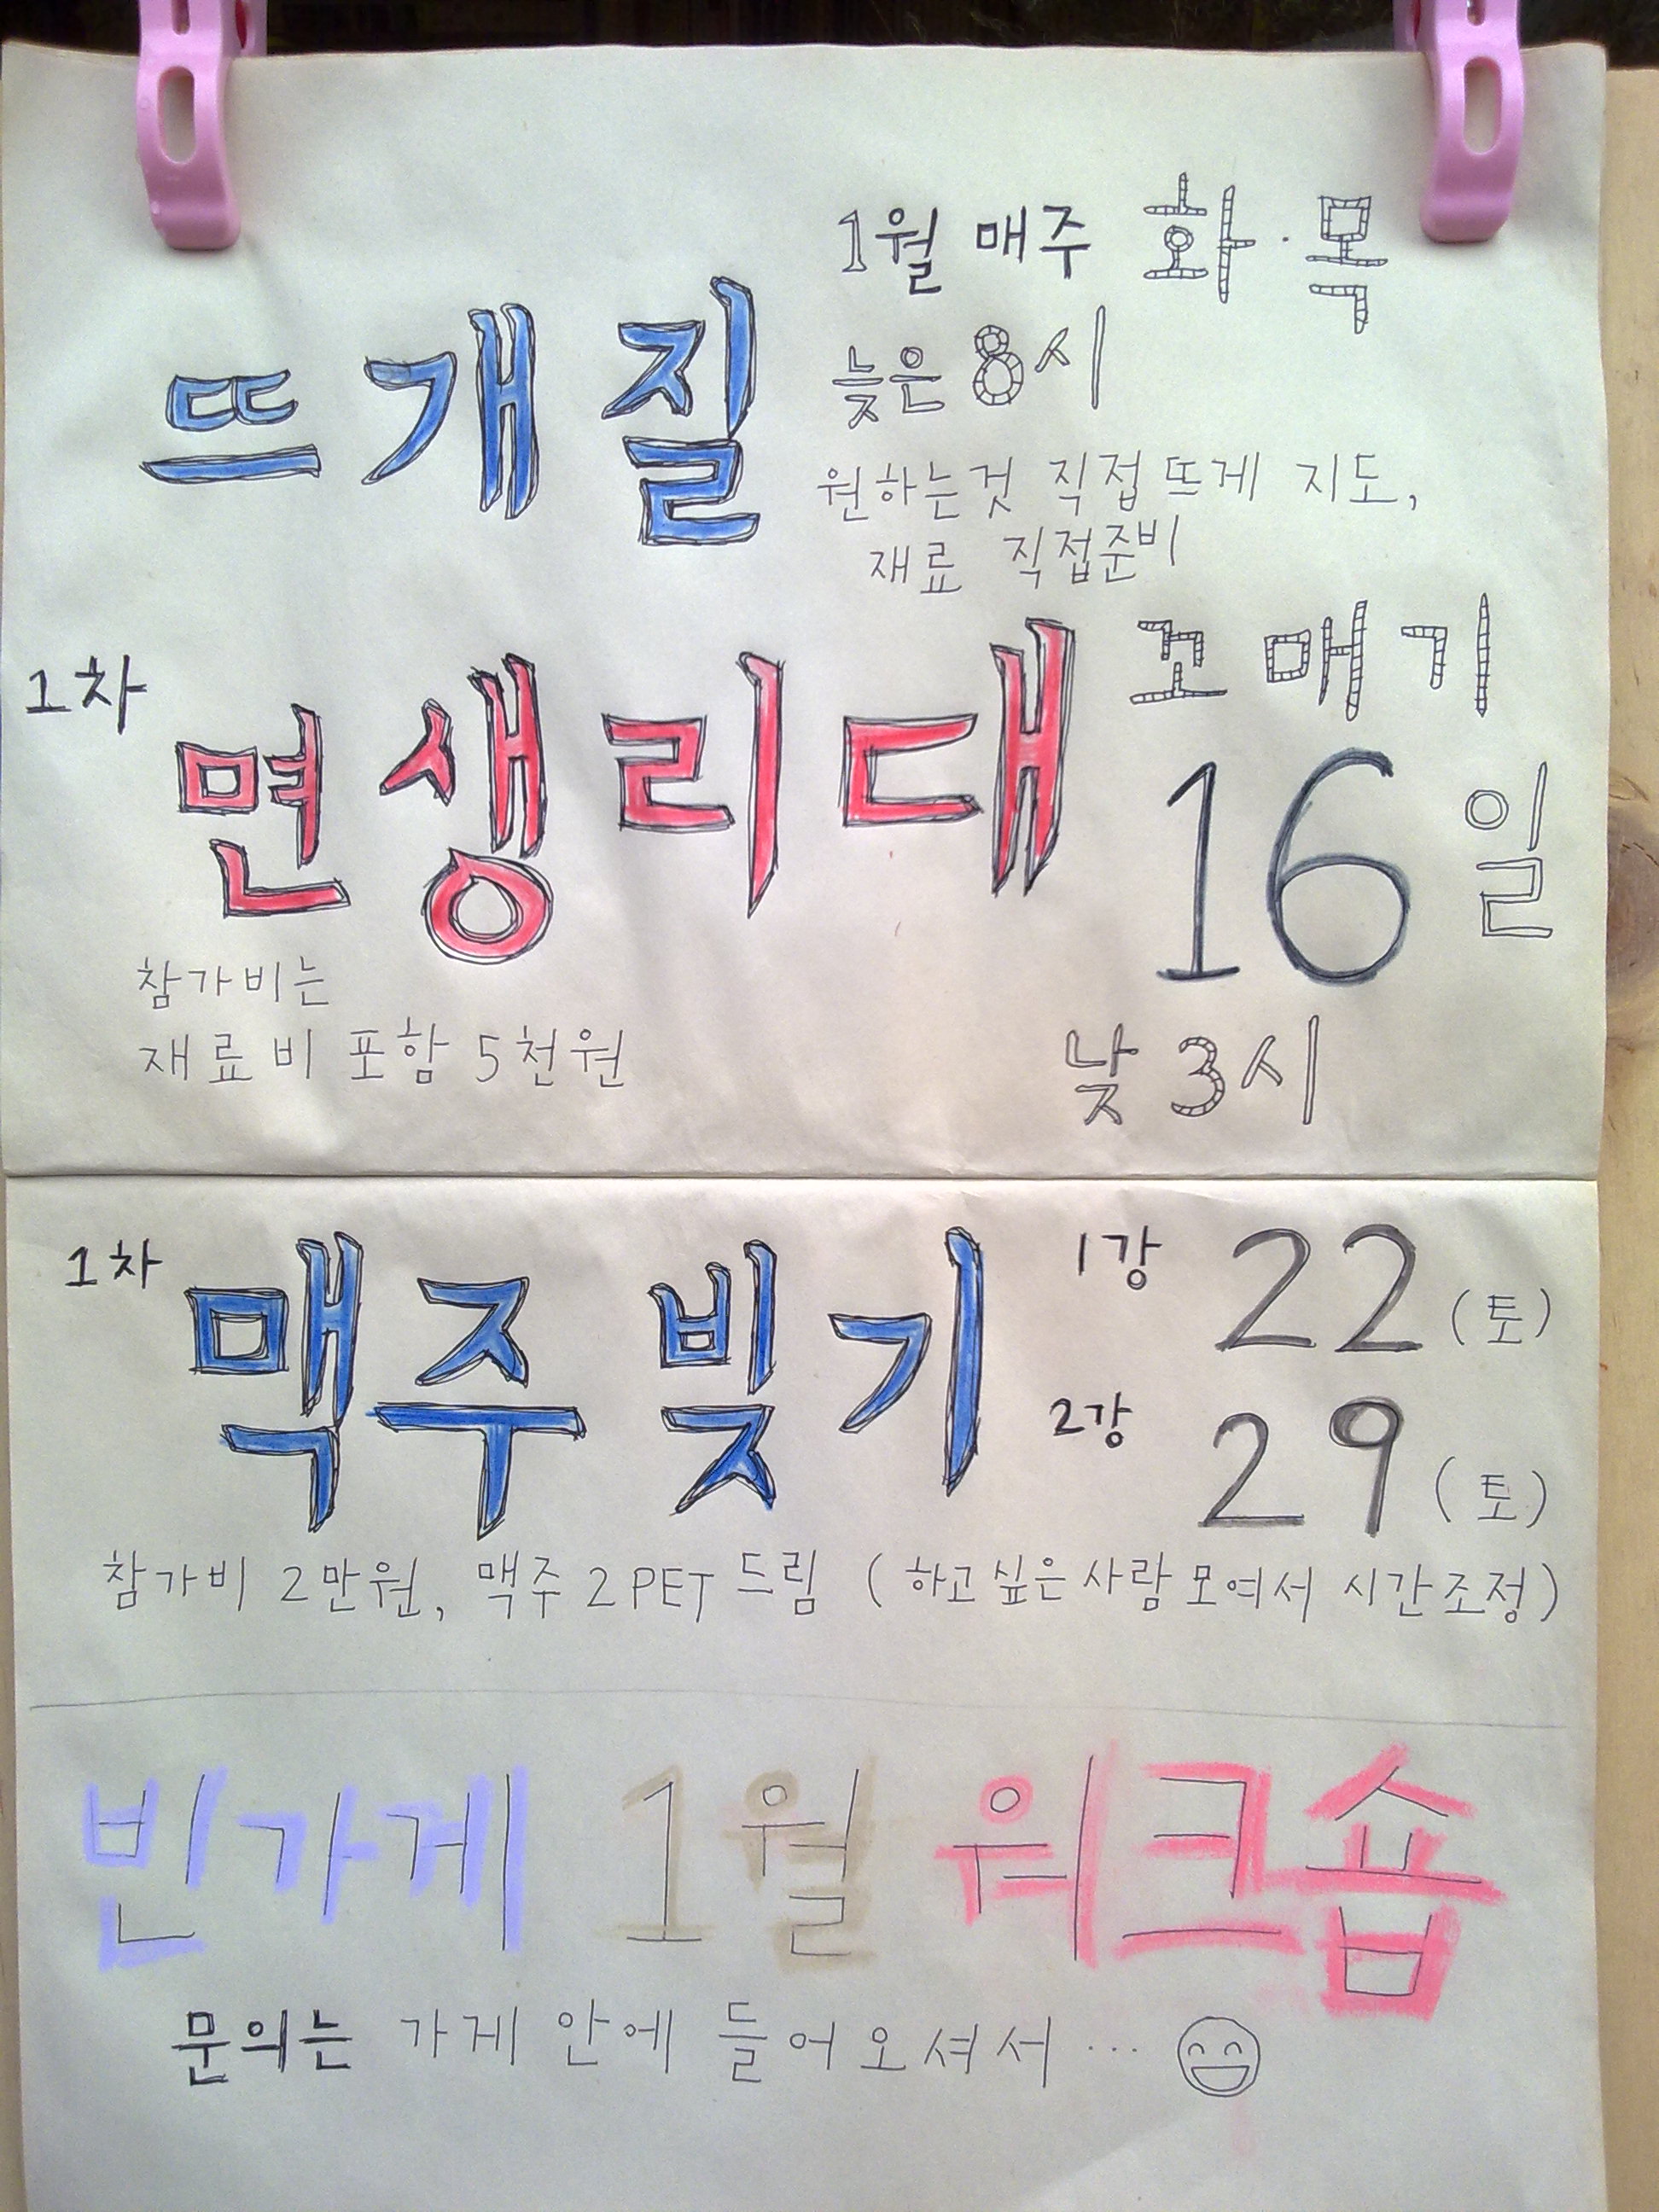 뜨개질
1월 매주 화·목
늦은 8시
원하는것 직접 뜨게 지도,
재료 직접준비
1차 면생리대 꼬매기
16일
낮 3시
참가비는
재료비 포함 5천원
1차 맥주 빚기
1강 22 (토)
2강 29 (토)
참가비 2만원, 맥주 2PET 드림 (하고싶은사람 모여서 시간조정)
빈가게 1월 워크숍
문의는 가게 안에 들어오셔서...